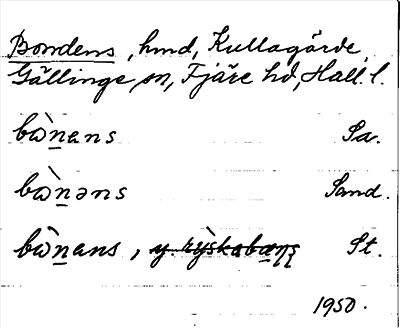 Bondens, hmd, Kullagärde,
Gällinge sn, Fjäre hd, Hall. l.
bὼnans Sa.
bὼnəns Sand.
bὼnans, St.
1950.